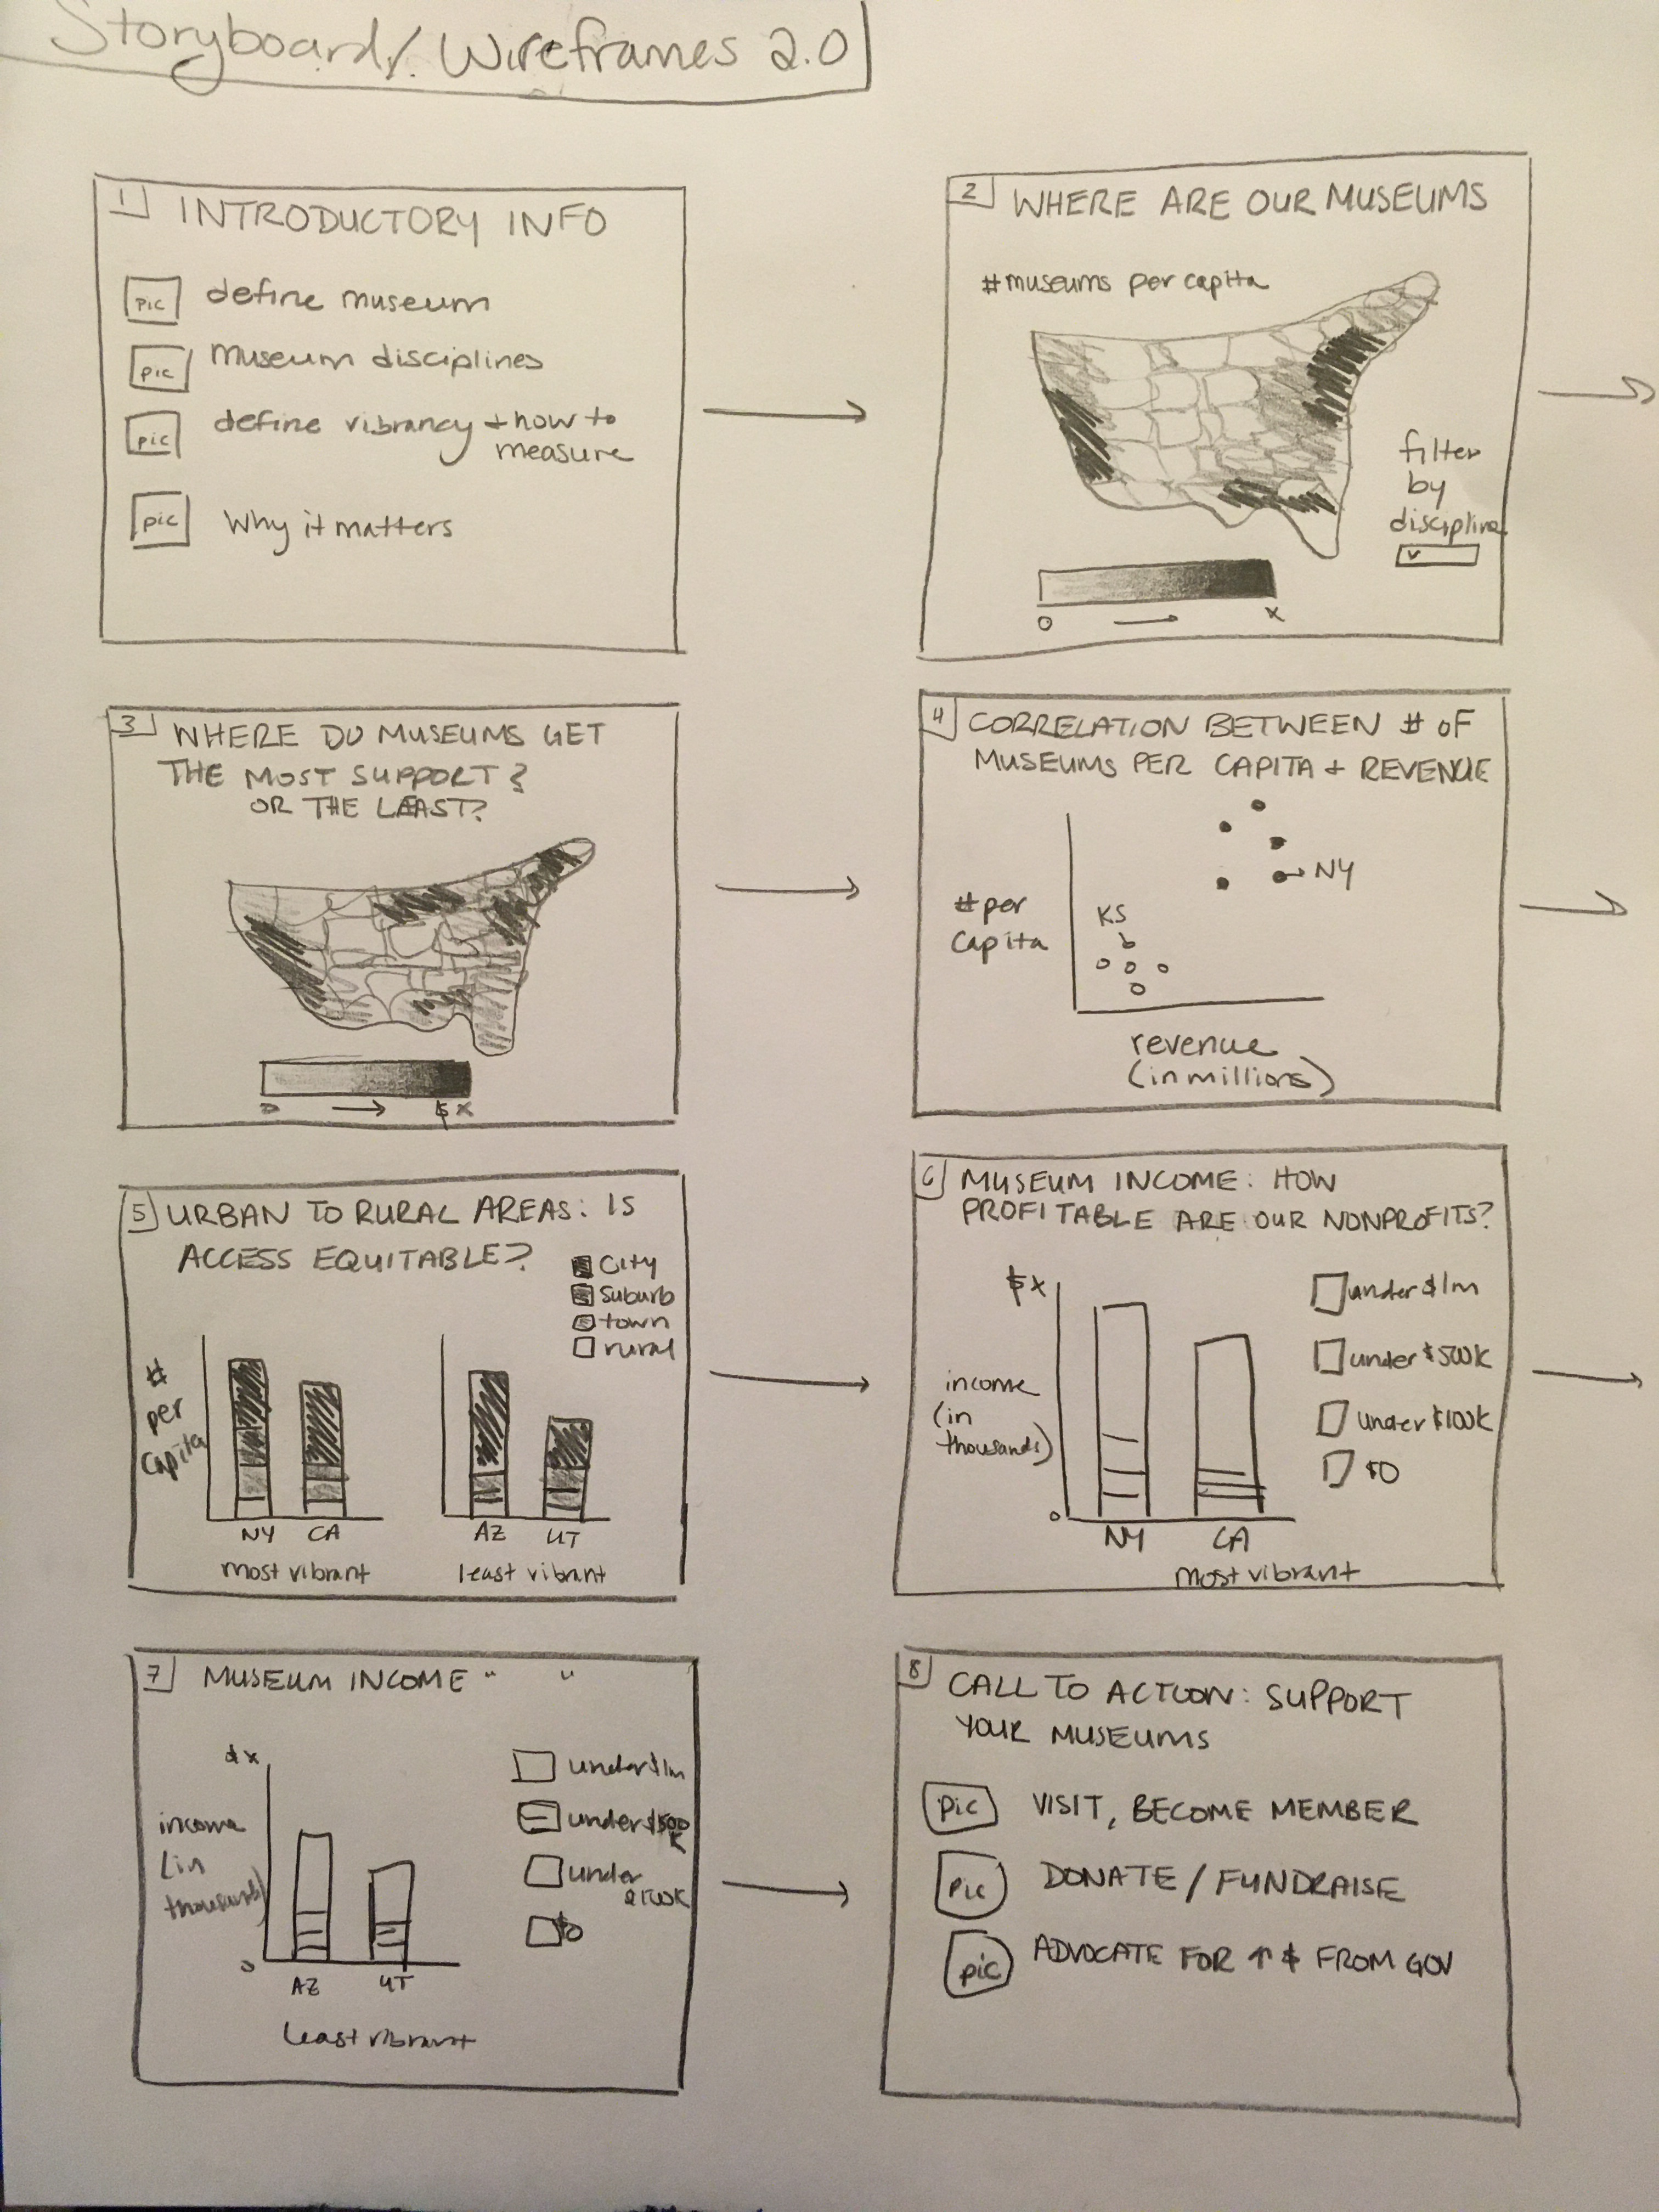 Storyboard/Wireframes 2.0
1 INTRODUCTORY INFO
pic define museum
pic museum disciplines
pic define vibrancy + how to
measure
pic Why it matters
2 WHERE ARE OUR MUSEUMS
# museums per capita
filter
by
discipline
v
0 → X
3 WHERE DO MUSEUMS GET
THE MOST SUPPORT?
OR THE LEAST?
0 → $X
4 CORRELATION BETWEEN # OF
MUSEUMS PER CAPITA + REVENUE
NY
KS
# per
capita
revenue
(in millions)
5 URBAN TO RURAL AREAS: IS
ACCESS EQUITABLE?
City
suburb
town
rural
#
per
capita
NY CA
AZ UT
most vibrant
least vibrant
6 MUSEUM INCOME: HOW
PROFITABLE ARE OUR NONPROFITS?
$X
under $1m
under $500K
under $100K
$0
income
(in
thousands)
0
NY CA
most vibrant
7 MUSEUM INCOME " "
$x
under $1m
under $500
K
under
$100K
$0
income
(in
thousands)
0
AZ UT
least vibrant
8 CALL TO ACTION: SUPPORT
YOUR MUSEUMS
pic VISIT, BECOME MEMBER
pic DONATE / FUNDRAISE
pic ADVOCATE FOR ↑ $ FROM GOV